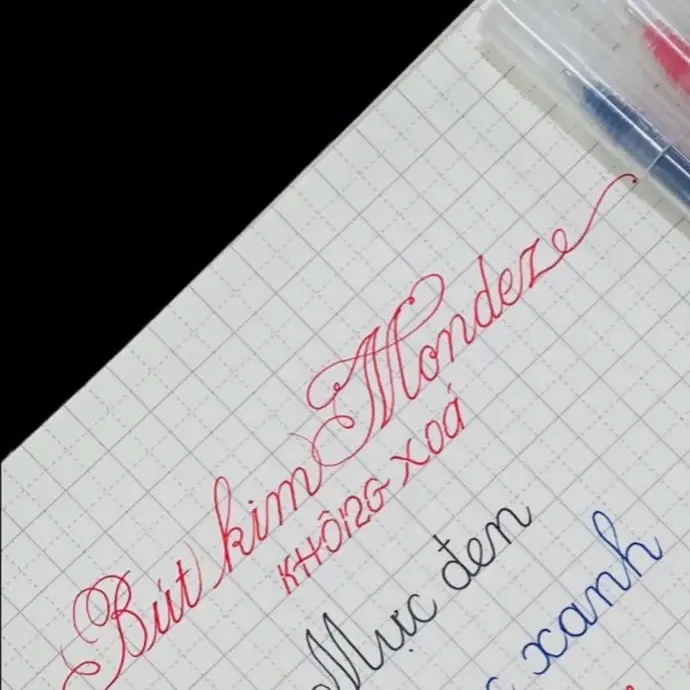 Bút kim Mondeze
KHÔNG XOÁ
Mực đen
xanh